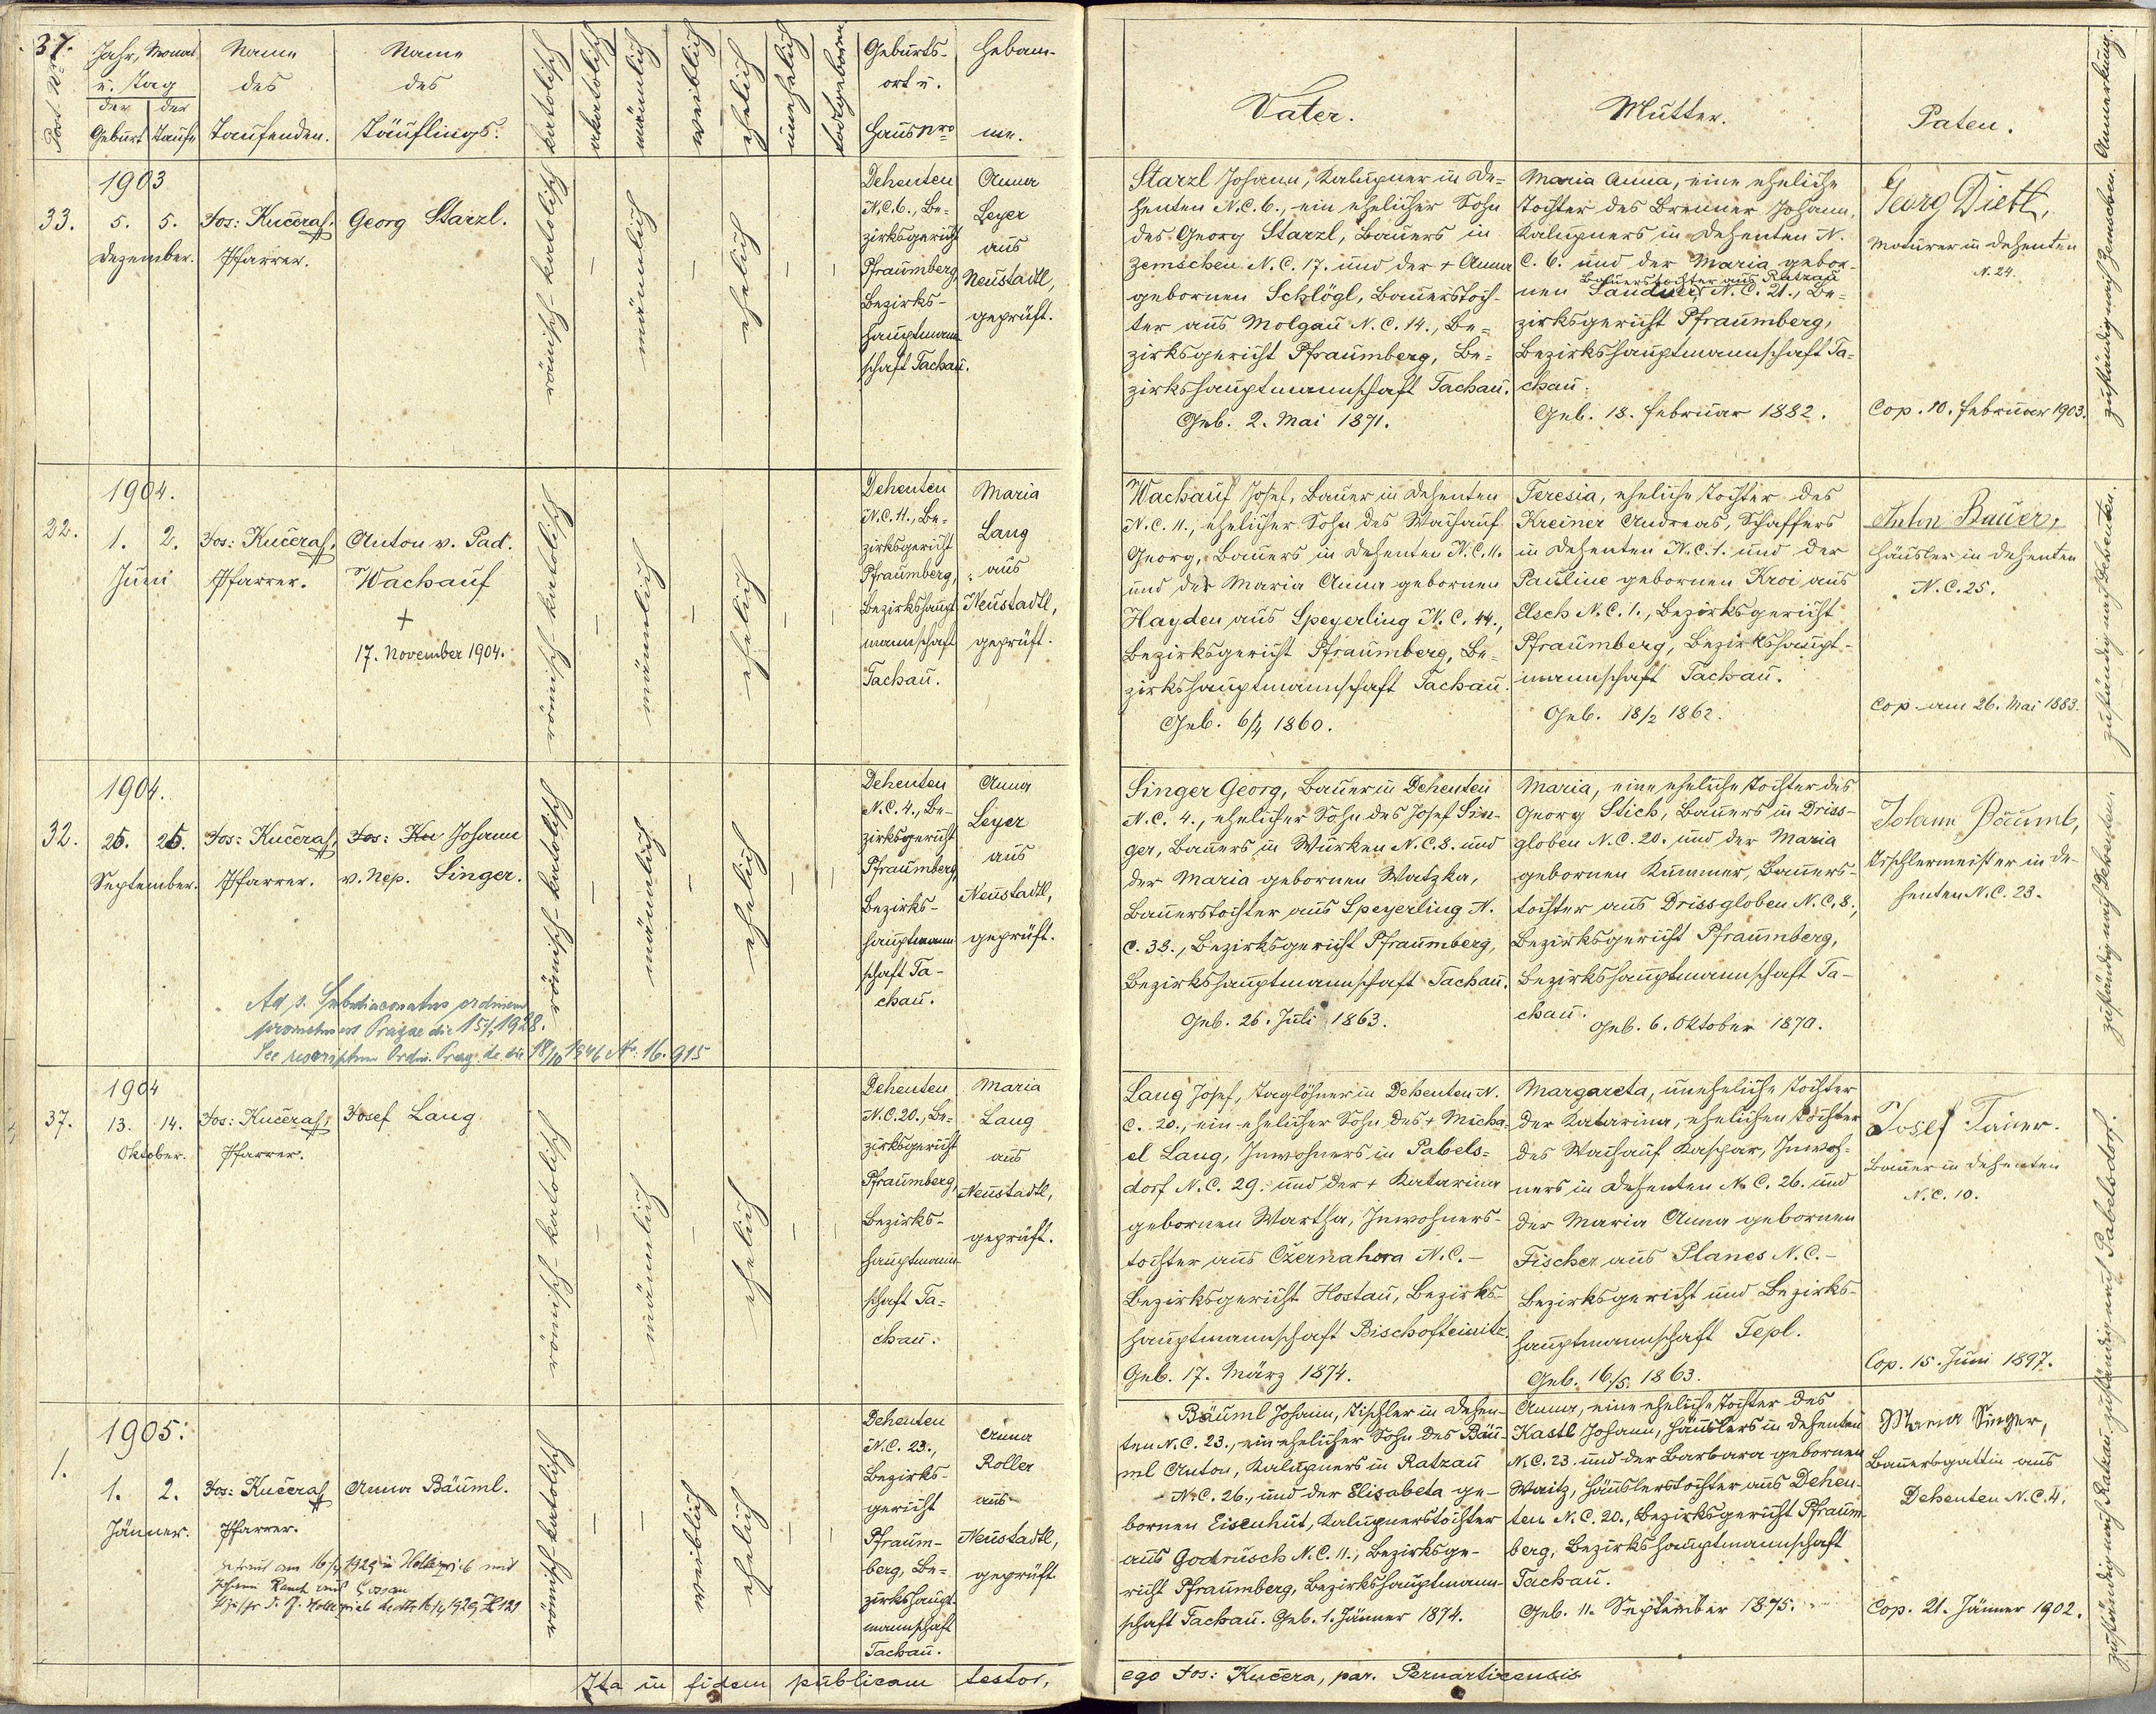 37.
Post. No
Jahr, Monat
u. Tag
der
der
Geburt
Taufe
Name
des
Taufenden.
Name
des
Täuflings.
katolisch
akatolisch
männlich
weiblich
ehelich
unehelich
todtgeboren
Geburts-
ort u.
Haus Nro
Hebam-
me.
Vater.
Mutter.
Paten.
Anmerkung.
33.
1903
5. 5.
Dezember.
Jos: Kučera,
Pfarrer.
Georg Starzl.
römisch-katolisch
–
männlich
–
ehelich
–
–
Dehenten
N.C.6., Be-
zirksgericht
Pfraumberg,
Bezirks-
hauptmann
schaft Tachau.
Anna
Leyer
aus
Neustadtl,
geprüft.
Starzl Johann, Kalupner in De-
henten N.C.6., ein ehelicher Sohn
des Georg Starzl, Bauers in
Zemschen N.C.17. und der + Anna
gebornen Schlögl, Bauerstoch-
ter aus Molgau N.C.14., Be-
zirksgericht Pfraumberg, Be-
zirkshauptmannschaft Tachau.
Geb. 2. Mai 1871.
Maria Anna, eine eheliche
Tochter des Brenner Johann,
Kalupners in Dehenten N.
C. 6. und der Maria gebor-
Bauerstochter aus Ratzau
nen Sandner N.C. 21., Be-
zirksgericht Pfraumberg,
Bezirkshauptmannschaft Ta-
chau.
Geb. 18. Februar 1882.
Georg Dietl,
Maurer in Dehenten
N. 24.
Cop. 10. Februar 1903.
zuständig nach Zemschen.
22.
1904.
1. 2.
Juni
Jos: Kučera,
Pfarrer.
Anton v. Pad.
Wachauf
+
17. November 1904.
römisch-katolisch
–
männlich
–
ehelich
–
–
Dehenten
N.C.11., Be-
zirksgericht
Pfraumberg,
Bezirkshaupt
mannschaft
Tachau.
Maria
Lang
aus
Neustadtl,
geprüft.
Wachauf Josef, Bauer in Dehenten
N.C. 11., ehelicher Sohn des Wachauf
Georg, Bauers in Dehenten N.C. 11.
und der Maria Anna gebornen
Hayden aus Speyerling N.C. 44.,
Bezirksgericht Pfraumberg, Be-
zirkshauptmannschaft Tachau.
Geb. 6/4 1860.
Teresia, eheliche Tochter des
Kreiner Andreas, Schaffers
in Dehenten N.C.1. und der
Pauline gebornen Kroi aus
Elsch N.C.1., Bezirksgericht
Pfraumberg, Bezirkshaupt-
mannschaft Tachau.
Geb. 18/2 1862.
Anton Bauer,
Häusler in Dehenten
N.C.25.
Cop. am 26. Mai 1883.
zuständig nach Dehenten.
32.
1904.
25. 26.
September.
Jos: Kučera,
Pfarrer.
Jos: Ku Johann
v. Nep. Singer.
Ad s. Subdiaconatus ordinem
promotus est Pragae die 15/7 1928.
See rescriptum Ordin. Prag. de die 18/10 1946 No. 16.915
römisch-katolisch
–
männlich
–
ehelich
–
–
Dehenten
N.C. 4., Be-
zirksgericht
Pfraumberg
Bezirks-
hauptmann
schaft Ta-
chau.
Anna
Leyer
aus
Neustadtl,
geprüft.
Singer Georg, Bauer in Dehenten
N.C. 4., ehelicher Sohn des Josef Sin-
ger, Bauers in Wurken N.C.8. und
der Maria gebornen Watzka,
Bauerstochter aus Speyerling N.
C. 38., Bezirksgericht Pfraumberg,
Bezirkshauptmannschaft Tachau.
Geb. 26. Juli 1863.
Maria, eine eheliche Tochter des
Georg Stich, Bauers in Driss-
globen N.C. 20. und der Maria
gebornen Kummer, Bauers-
tochter aus Drissgloben N.C. 8.,
Bezirksgericht Pfraumberg,
Bezirkshauptmannschaft Ta-
chau.
Geb. 6. Oktober 1870.
Johann Bäuml,
Tischlermeister in De-
henten N.C. 23.
zuständig nach Dehenten.
37.
1904
13. 14.
Oktober.
Jos: Kučera,
Pfarrer.
Josef Lang
römisch-katolisch
–
männlich
–
ehelich
–
–
Dehenten
N.C.20., Be-
zirksgericht
Pfraumberg,
Bezirks-
hauptmann-
schaft Ta-
chau.
Maria
Lang
aus
Neustadtl,
geprüft.
Lang Josef, Taglöhner in Dehenten N.
C. 20., ein ehelicher Sohn des + Micha-
el Lang, Inwohners in Pabels-
dorf N.C. 29. und der + Katarina
gebornen Wartha, Inwohners-
tochter aus Czernahora N.C. –
Bezirksgericht Hostau, Bezirks-
hauptmannschaft Bischofteinitz.
Geb. 17. März 1874.
Margareta, uneheliche Tochter
der Katarina, ehelichen Tochter
des Wachauf Kaspar, Inwoh-
ners in Dehenten N.C. 26. und
der Maria Anna gebornen
Fischer aus Planes N.C. –
Bezirksgericht und Bezirks-
hauptmannschaft Tepl.
Geb. 16./5. 1863.
Josef
Bauer in Dehenten
N.C. 10.
Cop. 15. Juni 1897.
zuständig nach Pabelsdorf.
1.
1905:
1. 2.
Jänner.
Jos: Kučera
Pfarrer.
Anna Bäuml.
getraut am 16/4 1929 in Kollerprieb mit
Johann
1929
römisch-katolisch
–
–
weiblich
ehelich
–
–
Dehenten
N.C. 23.,
Bezirks-
gericht
Pfraum-
berg, Be-
zirkshaupt-
mannschaft
Tachau.
Anna
Roller
aus
Neustadtl,
geprüft.
Bäuml Johann, Tischler in Dehen-
ten N.C. 23., ein ehelicher Sohn des Bäu-
ml Anton, Kalupners in Ratzau
N.C. 26., und der Elisabeta ge-
bornen Eisenhut, Kalupnerstochter
aus Godrusch N.C. 11., Bezirksge-
richt Pfraumberg, Bezirkshauptmann-
schaft Tachau. Geb. 1. Jänner 1874.
Anna, eine eheliche Tochter des
Kastl Johann, Häuslers in Dehenten
N.C. 23. und der Barbara gebornen
Waitz, Häuslerstochter aus Dehen-
ten N.C. 20., Bezirksgericht Pfraum-
berg, Bezirkshauptmannschaft
Tachau.
Geb. 11. September 1875.
Maria Singer,
Bauersgattin aus
Dehenten N.C. 4.
Cop. 21. Jänner 1902.
zuständig nach Ratzau.
Ita in fidem publicam testor,
ego Jos: Kučera, par. Pernarticensis